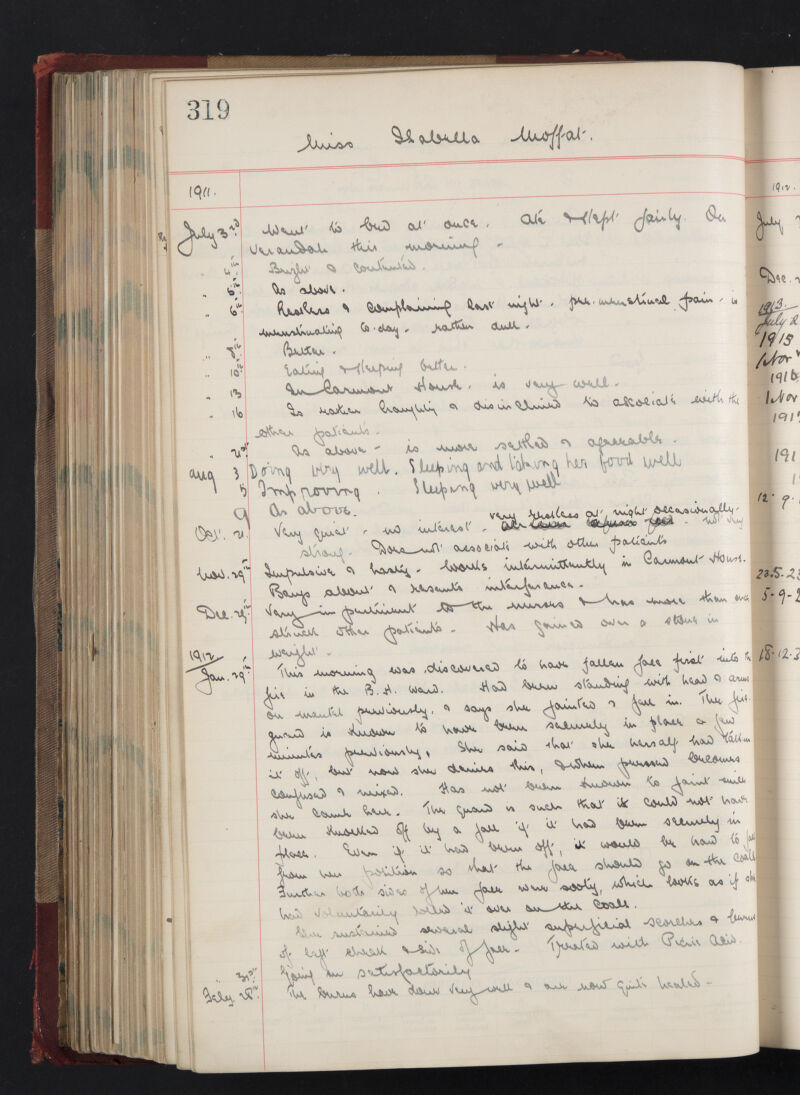 319
Miss Isabella Moffat.
1911.
July 3rd Went to bed at once. Ate & slept fairly. On
verandah this morning -
" 4th Bright & contented.
" 5th As above.
" 6th Restless & complaining last night - pre-menstrual pain - is
menstruating to-day - rather dull.
" 8th Better.
" 10th Eating & sleeping better.
" 13 In Carmont House. is very well.
" 16 Is rather haughty & disinclined to associate with the
other patients.
" 21st As above - is more settled & agreeable.
Aug 3 Doing very well. Sleeping and taking her food well
5 Improving. Sleeping very well
9 As above.
very restless at night occasionally.
Oct. 21. Very quiet - no interest - not very
strong. Does not associate with other patients
Nov. 29th Impulsive & hasty. Works intermittently in Carmont House.
Bangs about & resents interference.
Dec. 29th Very impertinent to the nurses & has more than once
struck other patients. Has gained over a stone in
weight.
1912
Jan. 29th This morning was discovered to have fallen face first into the
fire in the B.H. ward. Had been standing with head & arms
on mantel previously, & says she fainted & fell in. The fire
guard is known to have been securely in place a few
minutes previously. She said that she herself had taken
it off, but now she denies this, & when pressed becomes
confused & mixed. Has not been known to faint since
she came here. The guard is such that it could not have
been knocked off by a fall if it had been securely in
place. Even if it had been off, it would be hard to fall
from her position so that the face should go on the coals
Further both sides of her face were sooty, which looks as if she
had voluntarily rolled it over on the coals.
She sustained several slight superficial scorches & burns
of left cheek & side of face. Treated with Picric Acid.
" 31st Going on satisfactorily
Feby. 28th The burns have done very well & are now quite healed -
1912.
July
Dec.
1913.
July 2
1915
Nov
1916
Nov
191
191
12. 9.
23.5.23
5-9-2
18.12.3